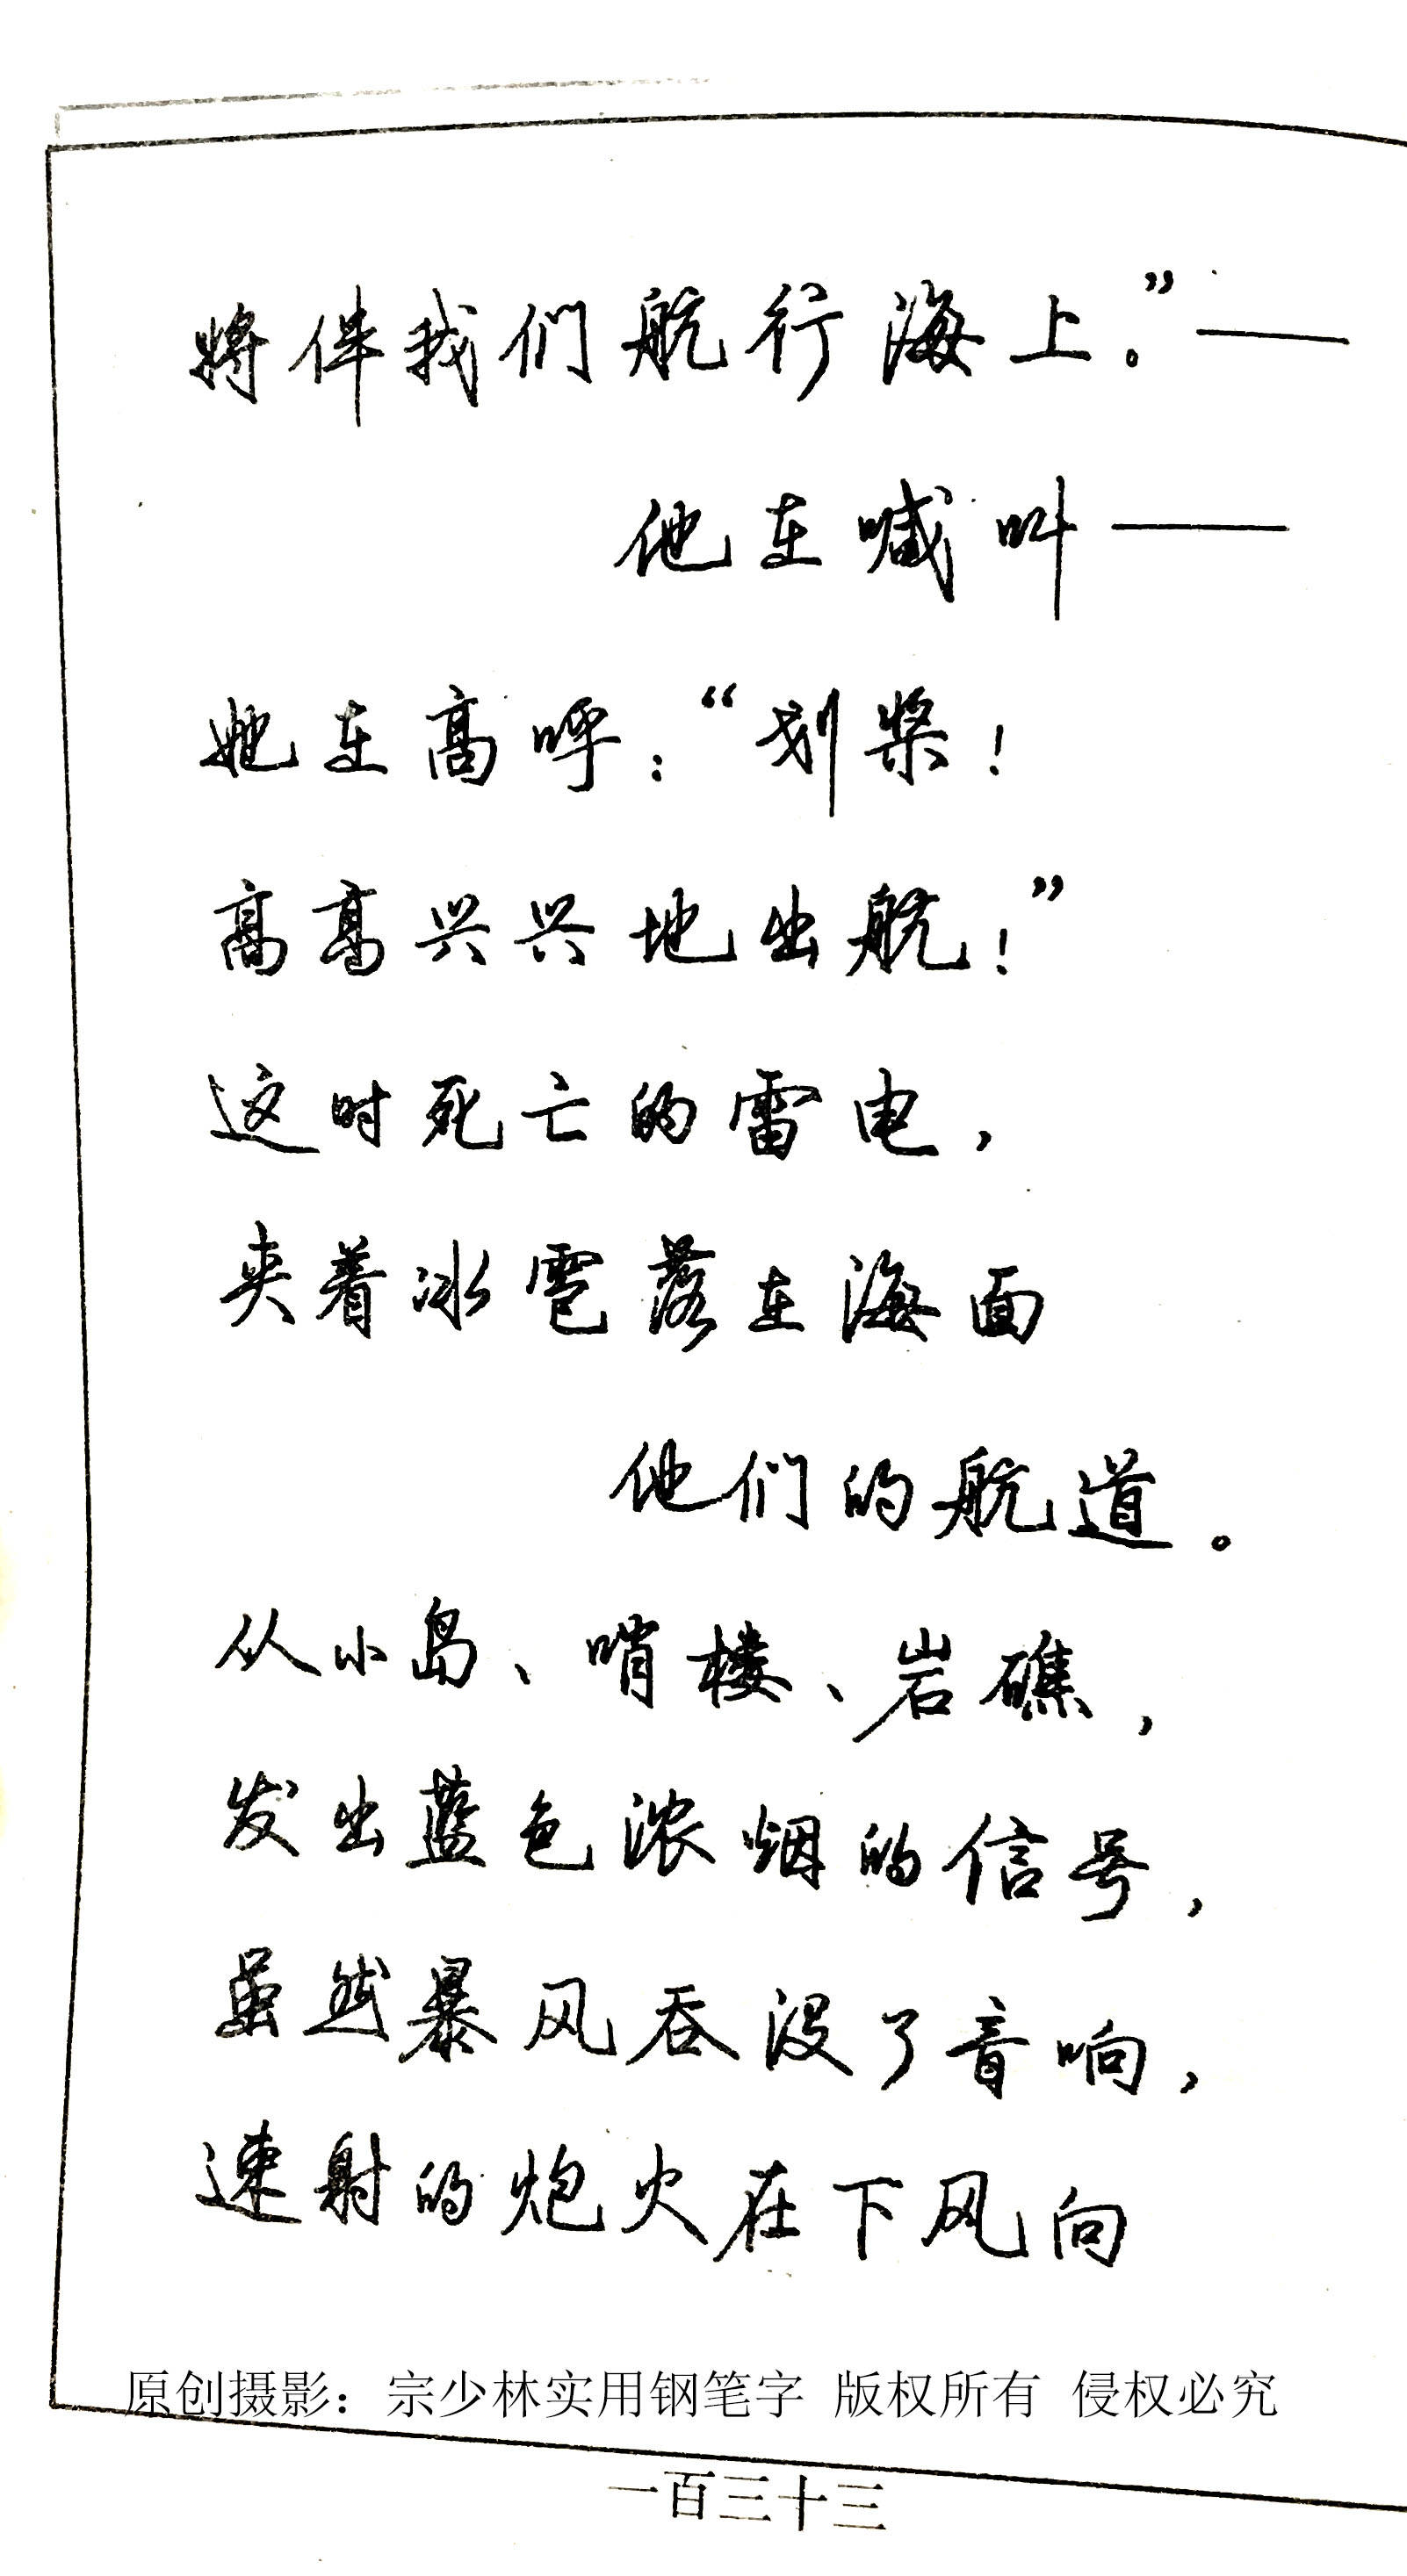 将伴我们航行海上。”——
他在喊叫——
她在高呼：“划桨！
高高兴兴地出航！”
这时死亡的雷电，
夹着冰雹落在海面
他们的航道。
从小岛、哨楼、岩礁，
发出蓝色浓烟的信号，
虽然暴风吞没了音响，
速射的炮火在下风向
原创摄影：宗少林实用钢笔字 版权所有 侵权必究
一百三十三